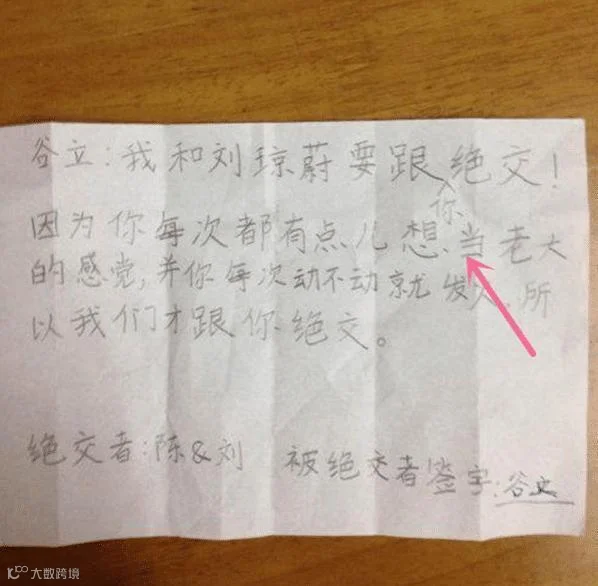 谷立:我和刘琼蔚要跟绝交!
你
因为你每次都有点儿想当老大
的感觉,并你每次动不动就发火,所
以我们才跟你绝交。
绝交者:陈&刘 被绝交者签字:谷立
大数跨境